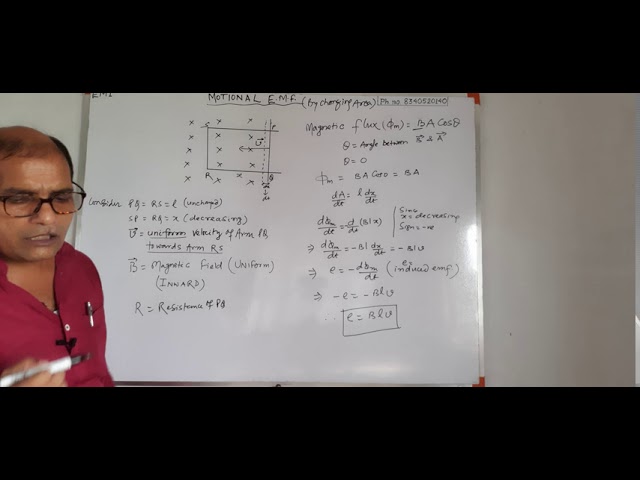 EMI
MOTIONAL E.M.F. (By changing Area) Ph no. 8340520140
S P
R Q
v
dx
Consider PQ = RS = l (unchanged)
SP = RQ = x (decreasing)
V = uniform velocity of Arm PQ
towards Arm RS
B = Magnetic Field (Uniform)
(INWARD)
R = Resistance of PQ
Magnetic flux (ϕm) = B A Cosθ
θ = Angle between B & A
θ = 0
ϕm = BA Cos0 = BA
dA/dt = l dx/dt
dϕm/dt = d/dt (Blx)
Since x = decreasing
Sign = -ve
⇒ dϕm/dt = -Bl dx/dt = -Blv
⇒ e = -dϕm/dt (e = induced emf)
⇒ -e = -Blv
∴ e = Blv